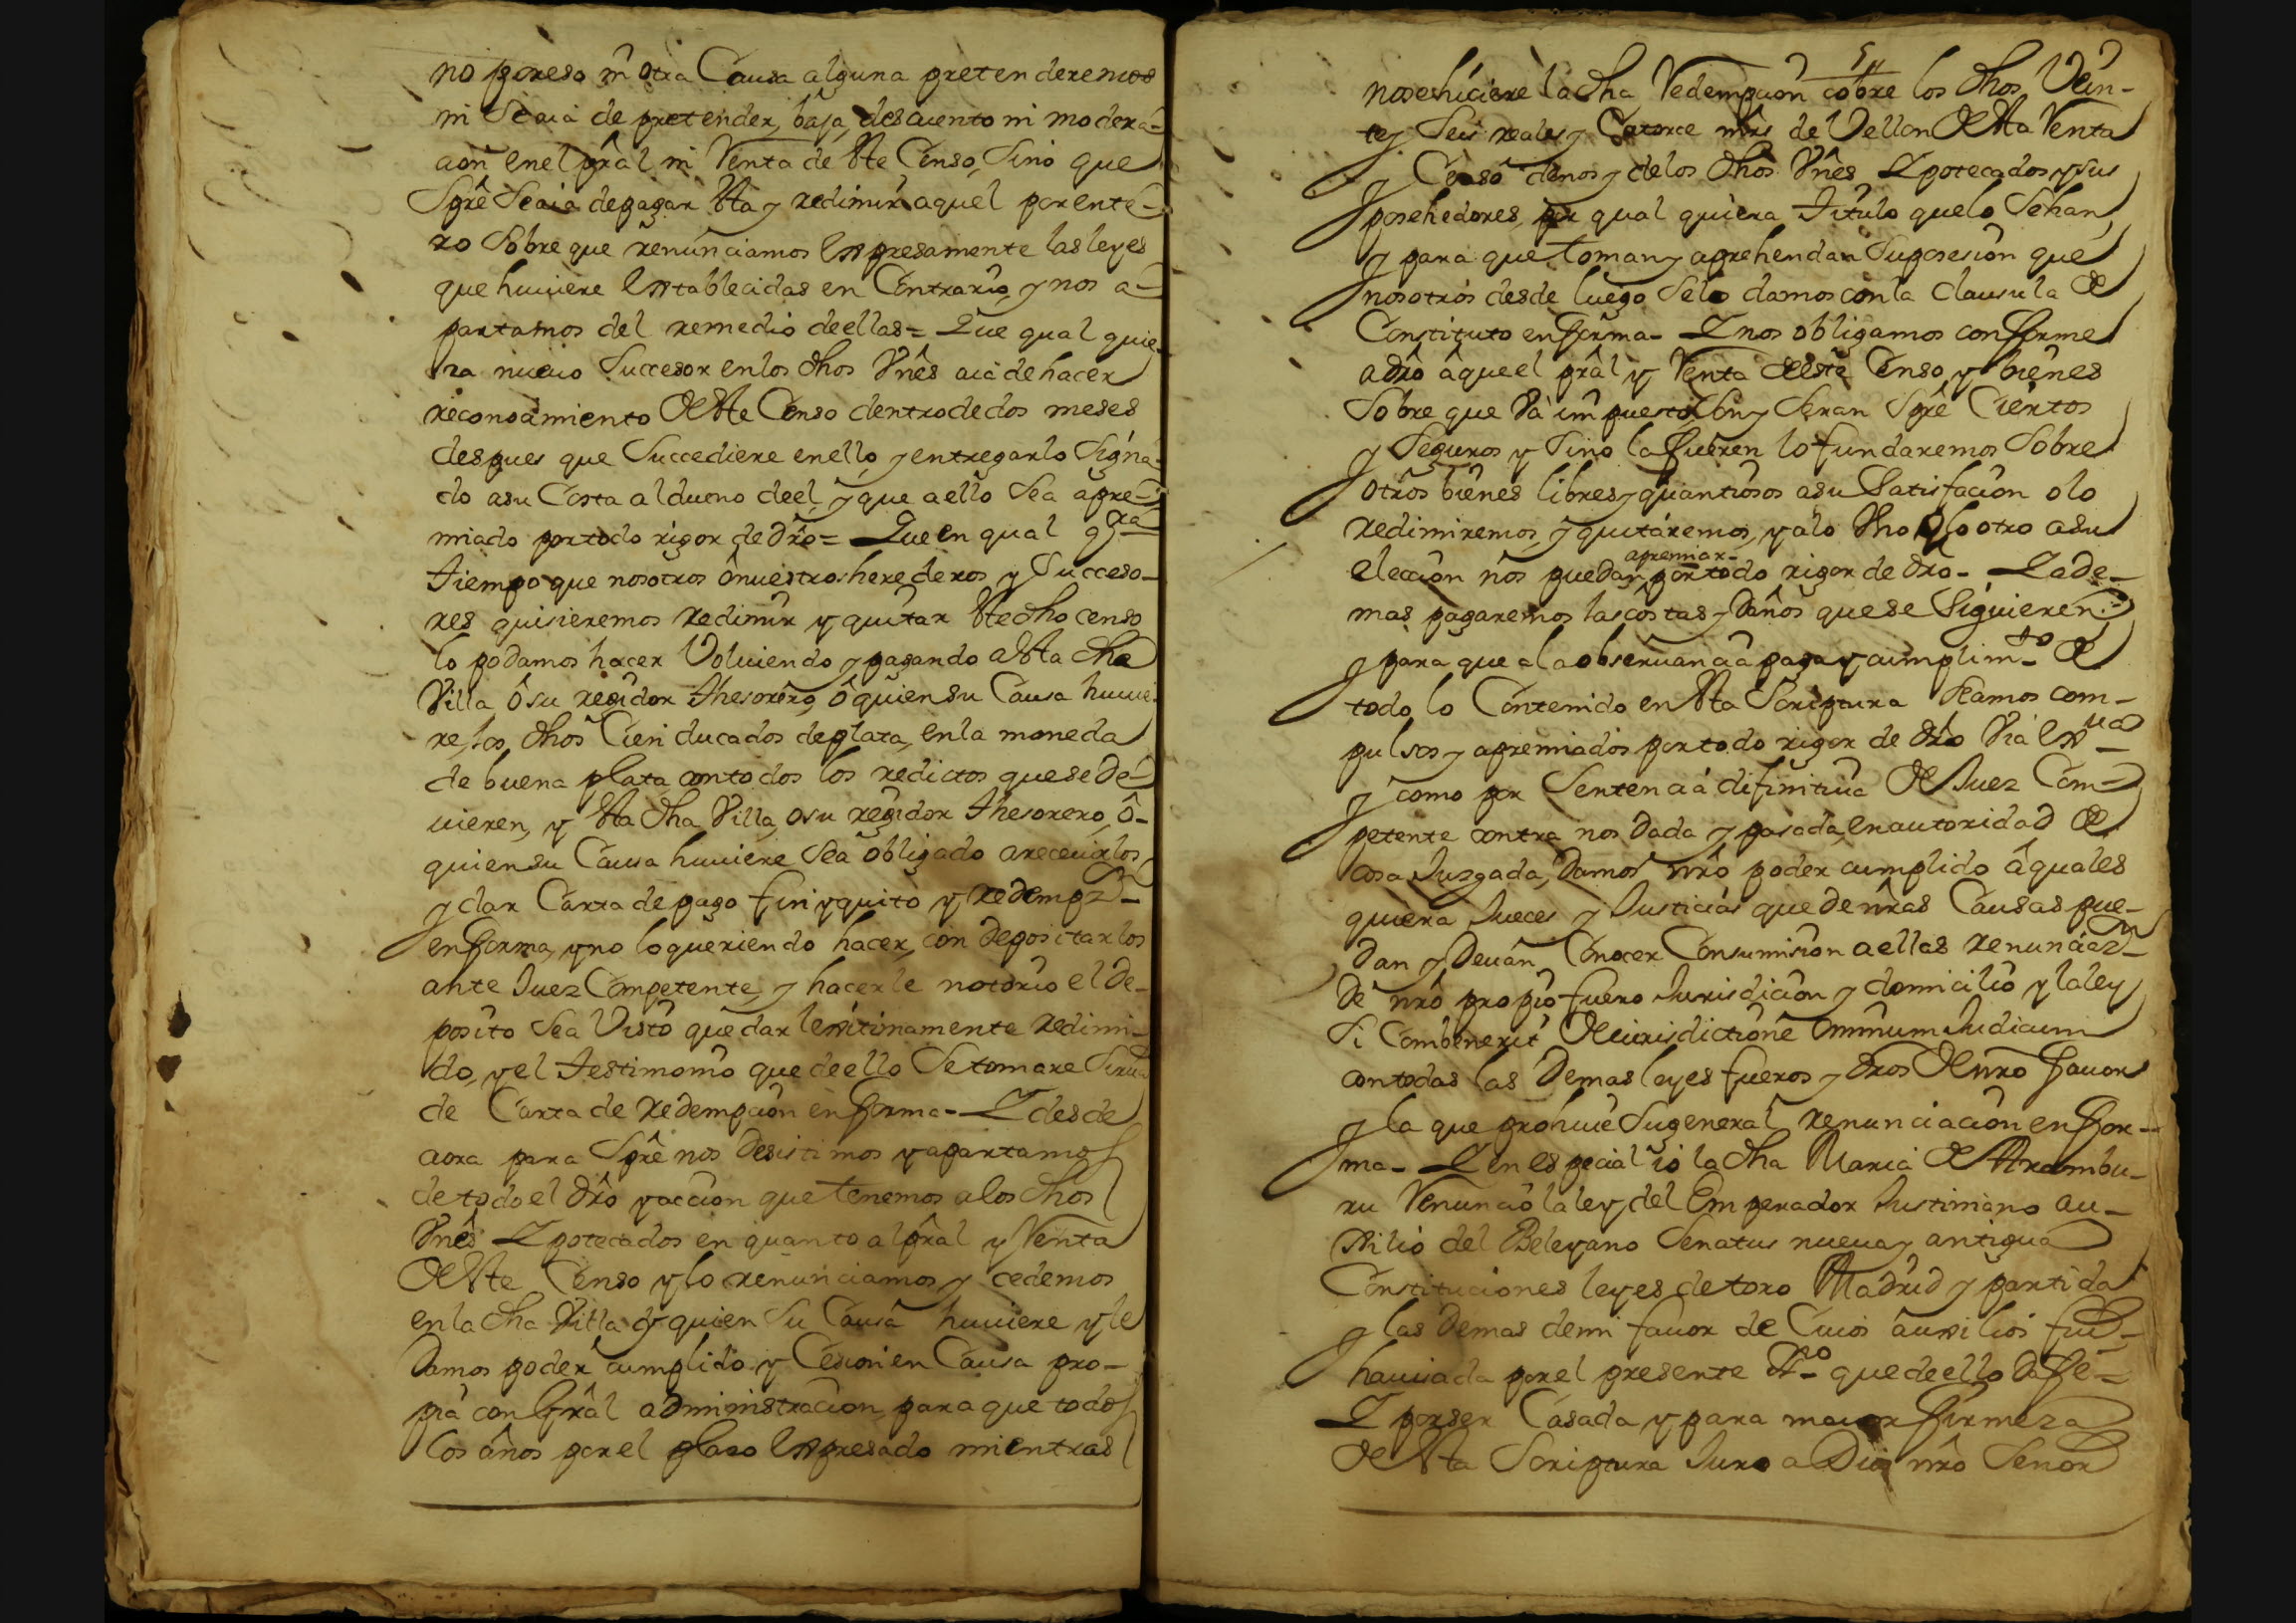 no ygoresa ni otra Causa alguna pretenderemos
ni Seaia de pretender, baja, descuento ni modera-
cion en el prâl ni Venta de Este Censo, Sino que
Sprê Seaia depagar Esta y redimir aquel por ente-
ro Sobre que renunciamos Expresamente las leyes
que huuiere Establecidas en Contrario, y nos a-
partamos del remedio deellas = Que qual quie-
ra nueuo Succesor enlos dhos Vnês aia de hacer
reconocimiento DeEste Censo dentrodedos meses
despues que Succediere enello, y entregarlo Signa-
do asu Costa aldueno deel, y que aello Sea apre-
miado portodo rigor de drô = Que en qual q.ra
Tiempo que nosotros ônuestros herederos y Succeso-
res quisieremos redimir y quitar Este dho censo
lo podamos hacer Voluiendo y pagando a Esta dha
Villa, ôsu regidor thesorero, ô quiensu Causa huuie-
re, los dhos Cien ducados deplata, enla moneda
de buena plata contodos los redictos quesede-
uieren, y Esta dha Villa, osu regidor thesorero, ô-
quiensu Causa huuiere Sea obligado areceuirlos
y dar Carta de pago finiyquito y redempz.on
enforma, yno loqueriendo hacer, con depositarlos
ante Juez Competente, y hacerle notorio el de-
posito Sea Visto quedar lexitimamente redimi-
do, y el testimonio que deello Setomare Sirua
de Carta de redempcion en forma - Y desde
aora para Sprê nos desistimos yapartamos
detodoel drô yaccion que tenemos alos dhos
Vnês Ypotecados en quanto alprâl y Venta
DeEste Censo ylo renunciamos y cedemos
enla dha Villa y quien Su Causa huuiere yle
Damos poder cumplido y Cesionen Causa pro-
pia con Gràl administracion, para que todos
los años porel plaso Expresado mientras
nosehiciere la dha Redempcion cobre los dhos Vein-
tey Seis reales y Catorce mrs de Vellon DeEsta Venta
y Censo denos y delos dhos Vnês Ypotecados ysus
posehedores, por qual quiera Titulo quelo Sehan
y para que toman y aprehendan Suposesion que
nosotros desde luego Selo damos conla Clausula de
Constituto enforma - Y nos obligamos conforme
adrô âqueel prâl y Venta deeste Censo y bienes
Sobre que Va impuesto Son y Seran Sprê Ciertos
y Seguros y Sino lo fueren lo fundaremos Sobre
otros bienes libres y quantiosos asu Satisfacion olo
redimiremos, y quitaremos, yalo Vno ylo otro asu
eleccion nos puedan apremiar portodo rigor de drô - Y ade-
mas pagaremos las costas y Daños quese Siguieren
y para que ala obseruancia paga y cumplim.to de
todo lo Contenido en Esta Scriptura Seamos com-
pulsos y apremiados portodo rigor de drô Via Ex.ua
y como por Sentencia difinitiua De Juez Com-
petente contra nos Dada y pasada, enautoridad de
cosa Juzgada, Damos nrô poder cumplido â quales
quiera Jueces y Justicias que denrâs Causas pue-
dan y Deuan Conocer Consumision aellas renunciaz.on
de nrô propio fuero Jurisdicion y domicilio ylaley
Si Combenerit De iurisdictione Omnium Judicum
contodas las Demas leyes fueros y dros De nro fauor
y la que prohiue Sugeneral renunciacion enfor-
ma - Y en especial io la dha Maria De Arambu-
ru renuncio laley, del Emperador Justiniano au-
xilio del Beleyano Senatus nueua y antigua
Constituciones leyes detoro Madrid y partida
y las Demas demi fauor de Cuios auxilios fui
hauisada porel presente Ss.no que deello Dafe -
Y porser Casada y para maior firmeza
De Esta Scriptura Juro a Dios nrô Señor